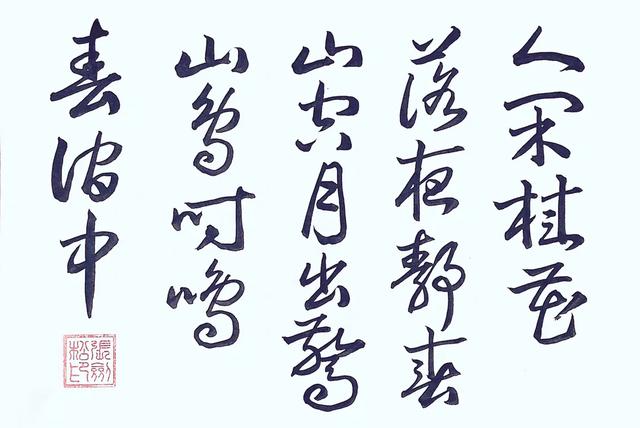 人閑桂花
落夜靜春
山空月出驚
山鳥時鳴
春澗中
張劍
松印